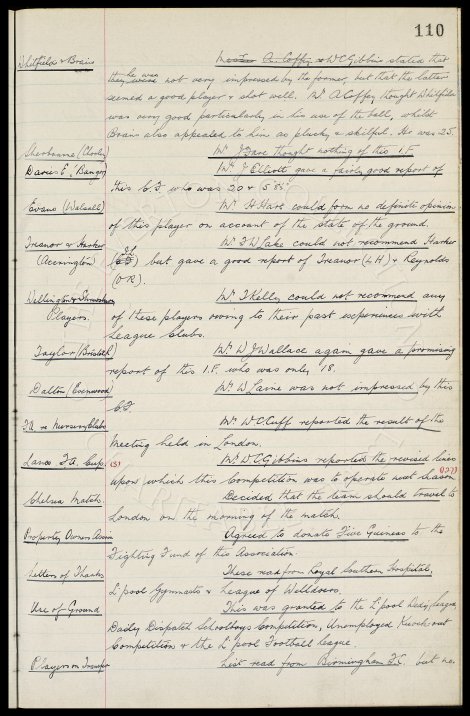 110
Whitfield & Brain Messrs A. Coffey & W.C. Gibbins stated that
they were he was not very impressed by the former, but that the latter
seemed a good player & shot well. Mr A Coffey thought Whitfield
was very good particularly in his use of the ball, whilst
Brain also appealed to him as plucky & skilful. He was 25.
Sherbourne (Chorley) Mr J Fare thought nothing of this I.F.
Davies E. (Bangor) Mr J Elliott gave a fairly good report of
this C.F. who was 20 & 5'8½".
Evans (Walsall) Mr H Hare could form no definite opinion
of this player on account of the state of the ground.
Treanor & Harker Mr F W Lake could not recommend Harker
(Accrington) but gave a good report of Treanor (L.H) & Reynolds
(O.R).
Wellington & Shrewsbury Mr T Kelly could not recommend any
Players. of these players owing to their past experiences with
League Clubs.
Taylor (Bristol R) Mr W J Wallace again gave a promising
report of this I.F. who was only 18.
Dalton (Evenwood) Mr W Laine was not impressed by this
C.F.
F.A. re Nursery Clubs Mr W C Cuff reported the result of the
Meeting held in London.
Lancs F.A. Cup. (S) Mr W C Gibbins reported the revised lines
upon which this Competition was to operate next season (127)
Chelsea Match Decided that the team should travel to
London on the morning of the match.
Property Owners Assocn Agreed to donate Five Guineas to the
Fighting Fund of this Association.
Letters of Thanks These read from Royal Southern Hospital,
L'pool Gymnasts & League of Welldoers.
Use of Ground This was granted to the L'pool Red X League
Daily Dispatch Schoolboys Competition, Unemployed Knock-out
Competition & the L'pool Football League.
Players on Transfer List read from Birmingham F.C. but no